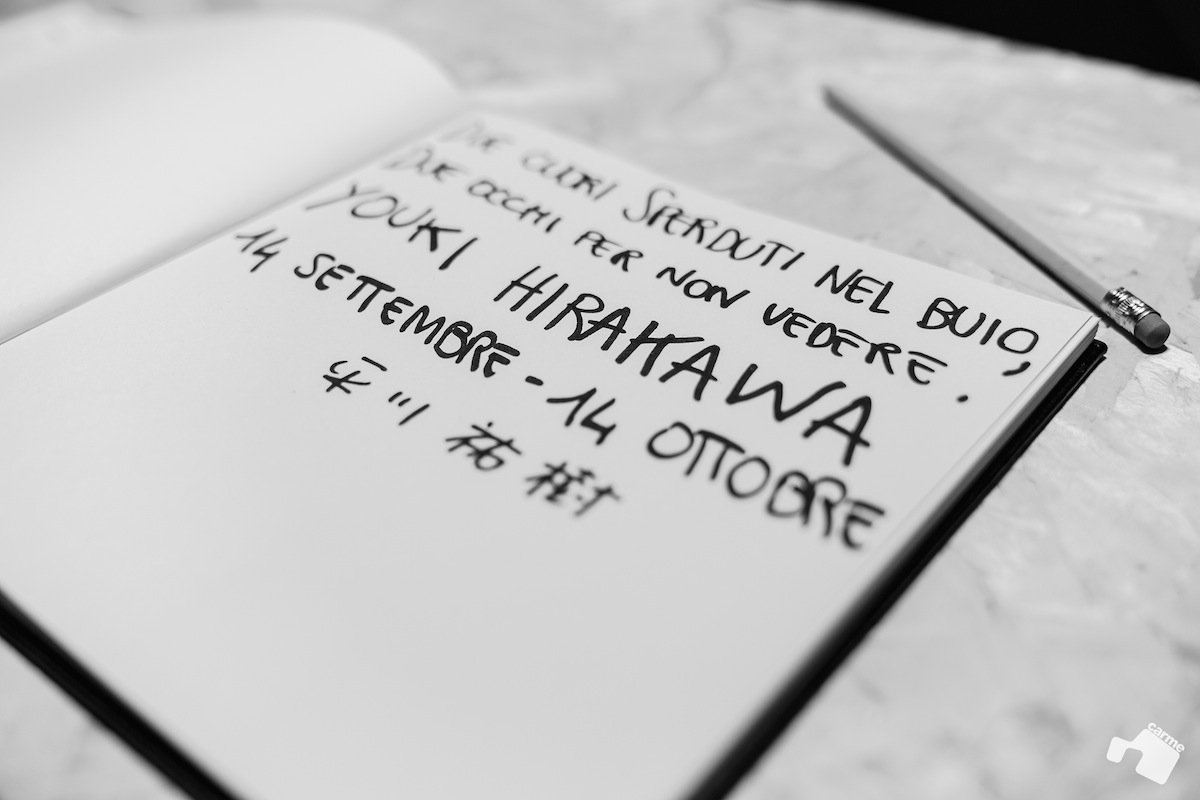 DUE CUORI SPERDUTI NEL BUIO,
DUE OCCHI PER NON VEDERE.
YOUKI HIRAKAWA
14 SETTEMBRE - 14 OTTOBRE
平川 祐樹
carme